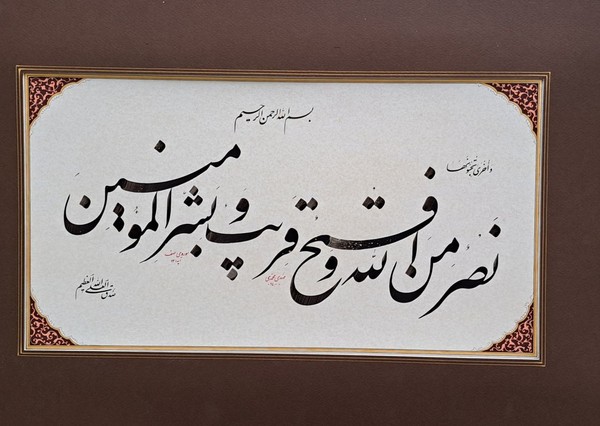 بسم الله الرحمن الرحیم
واخری تحبونها
نصر من الله و فتح قریب و بشر المومنین
صدق الله العلی العظیم